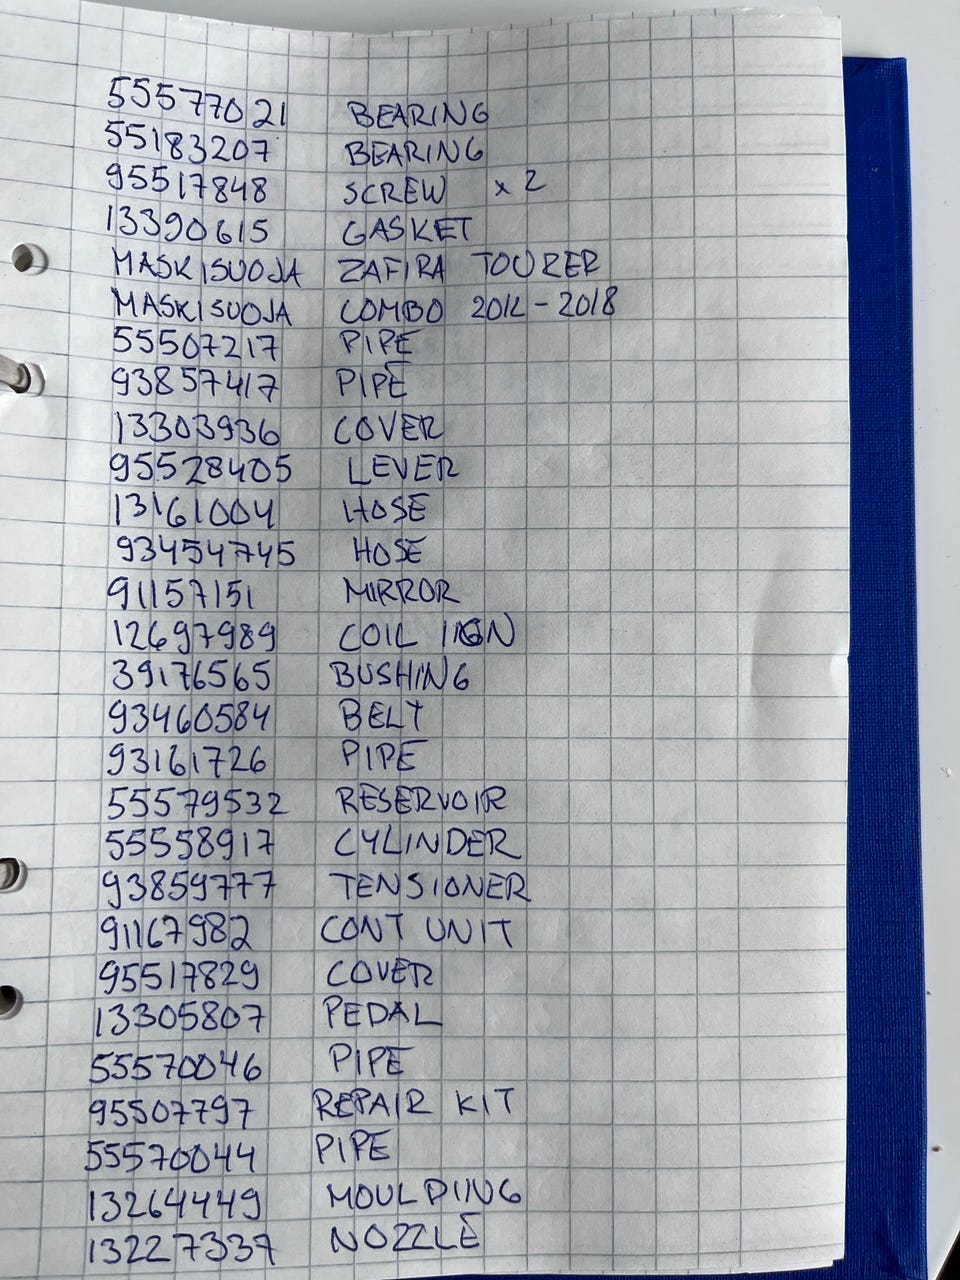 55577021 BEARING
55183207 BEARING
95517848 SCREW x 2
13390615 GASKET
MASKISUOJA ZAFIRA TOURER
MASKISUOJA COMBO 2012-2018
55507217 PIPE
93857417 PIPE
13303936 COVER
95528405 LEVER
13161004 HOSE
93454745 HOSE
91157151 MIRROR
12697989 COIL IGN
39176565 BUSHING
93460584 BELT
93161726 PIPE
55579532 RESERVOIR
55558917 CYLINDER
93859777 TENSIONER
91167982 CONT UNIT
95517829 COVER
13305807 PEDAL
55570046 PIPE
95507797 REPAIR KIT
55570044 PIPE
13264449 MOULDING
13227337 NOZZLE